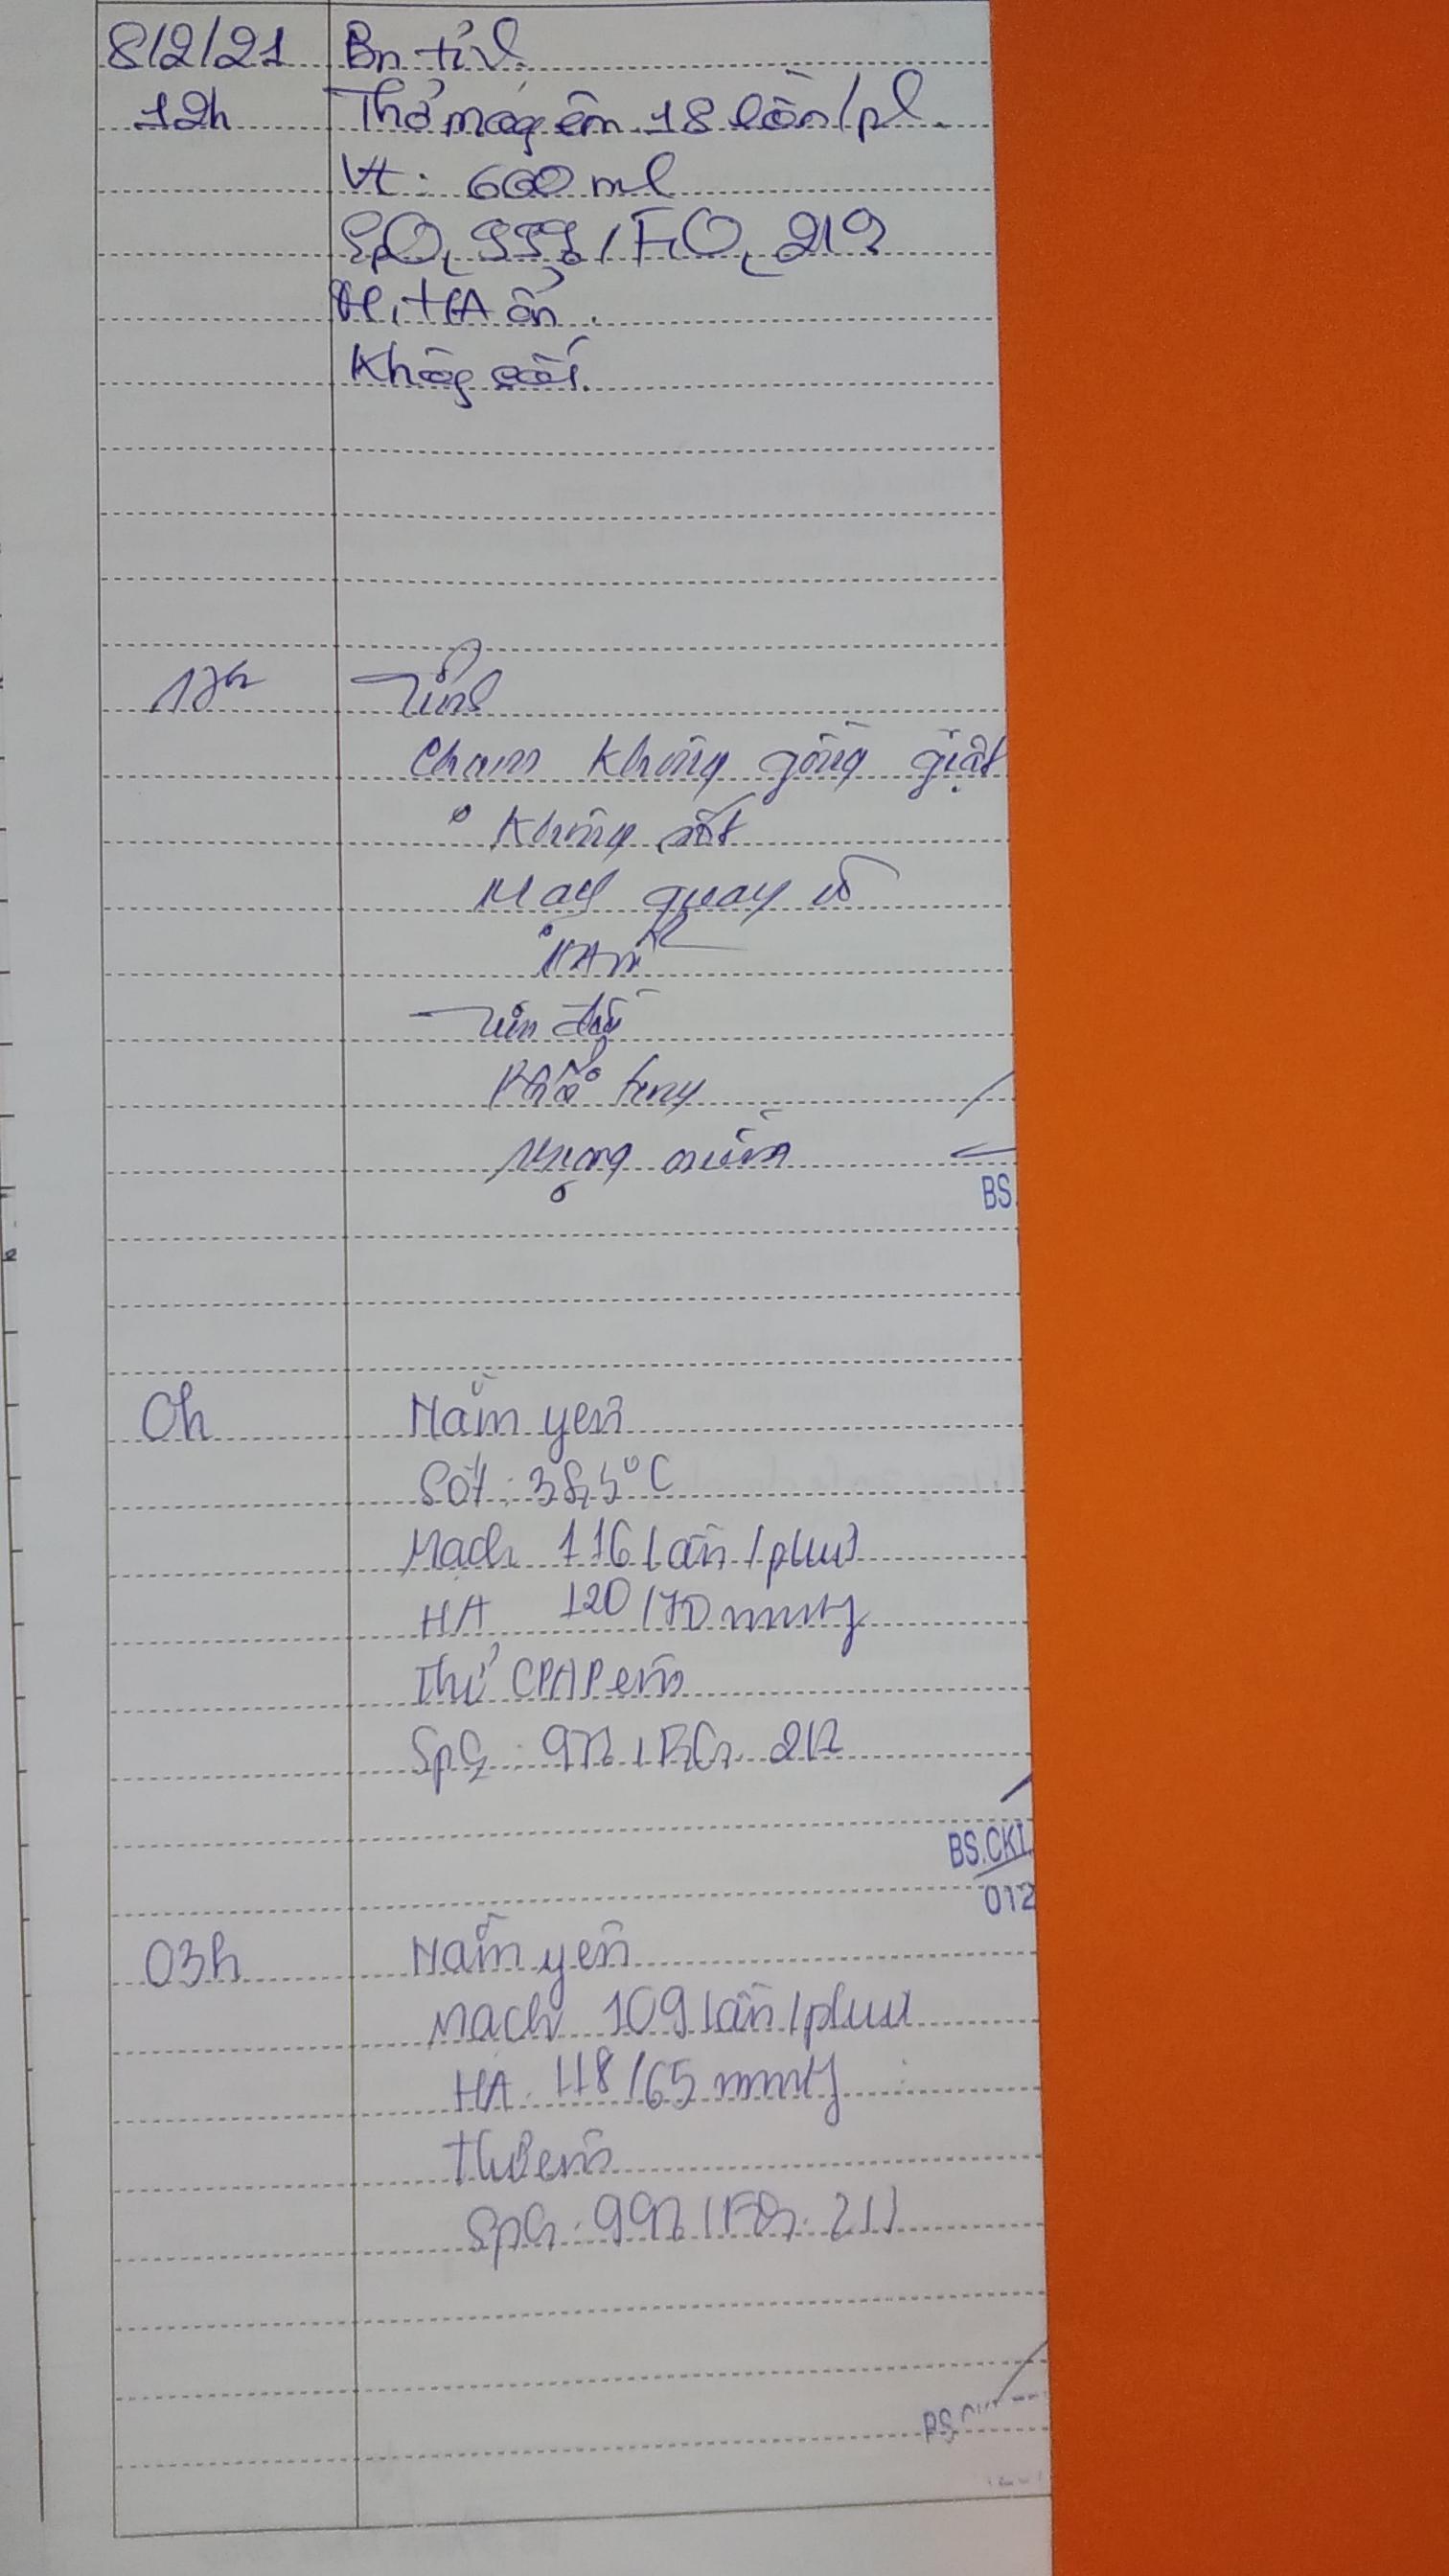 8/2/21 Bn tỉnh.
12h Thở máy êm 18 lần/ph.
Vt: 600 ml
SpO2 99% / FiO2 21%
M, HA ổn.
Không sốt.
17h Tỉnh
Chưa không gồng giật
Không sốt
Mạch quay rõ
HA
Tim đều
Phổi trong
Bụng mềm
BS.
0h Nằm yên
Sốt: 38,5°C
Mạch 116 lần/phút
HA 120/70 mmHg
Thở CPAP êm
SpO2: 97% / FiO2 21%
BS.CKI.
012
03h Nằm yên
Mạch 109 lần/phút
HA. 118/65 mmHg
Thở êm
SpO2: 99% / FiO2: 21%
BS